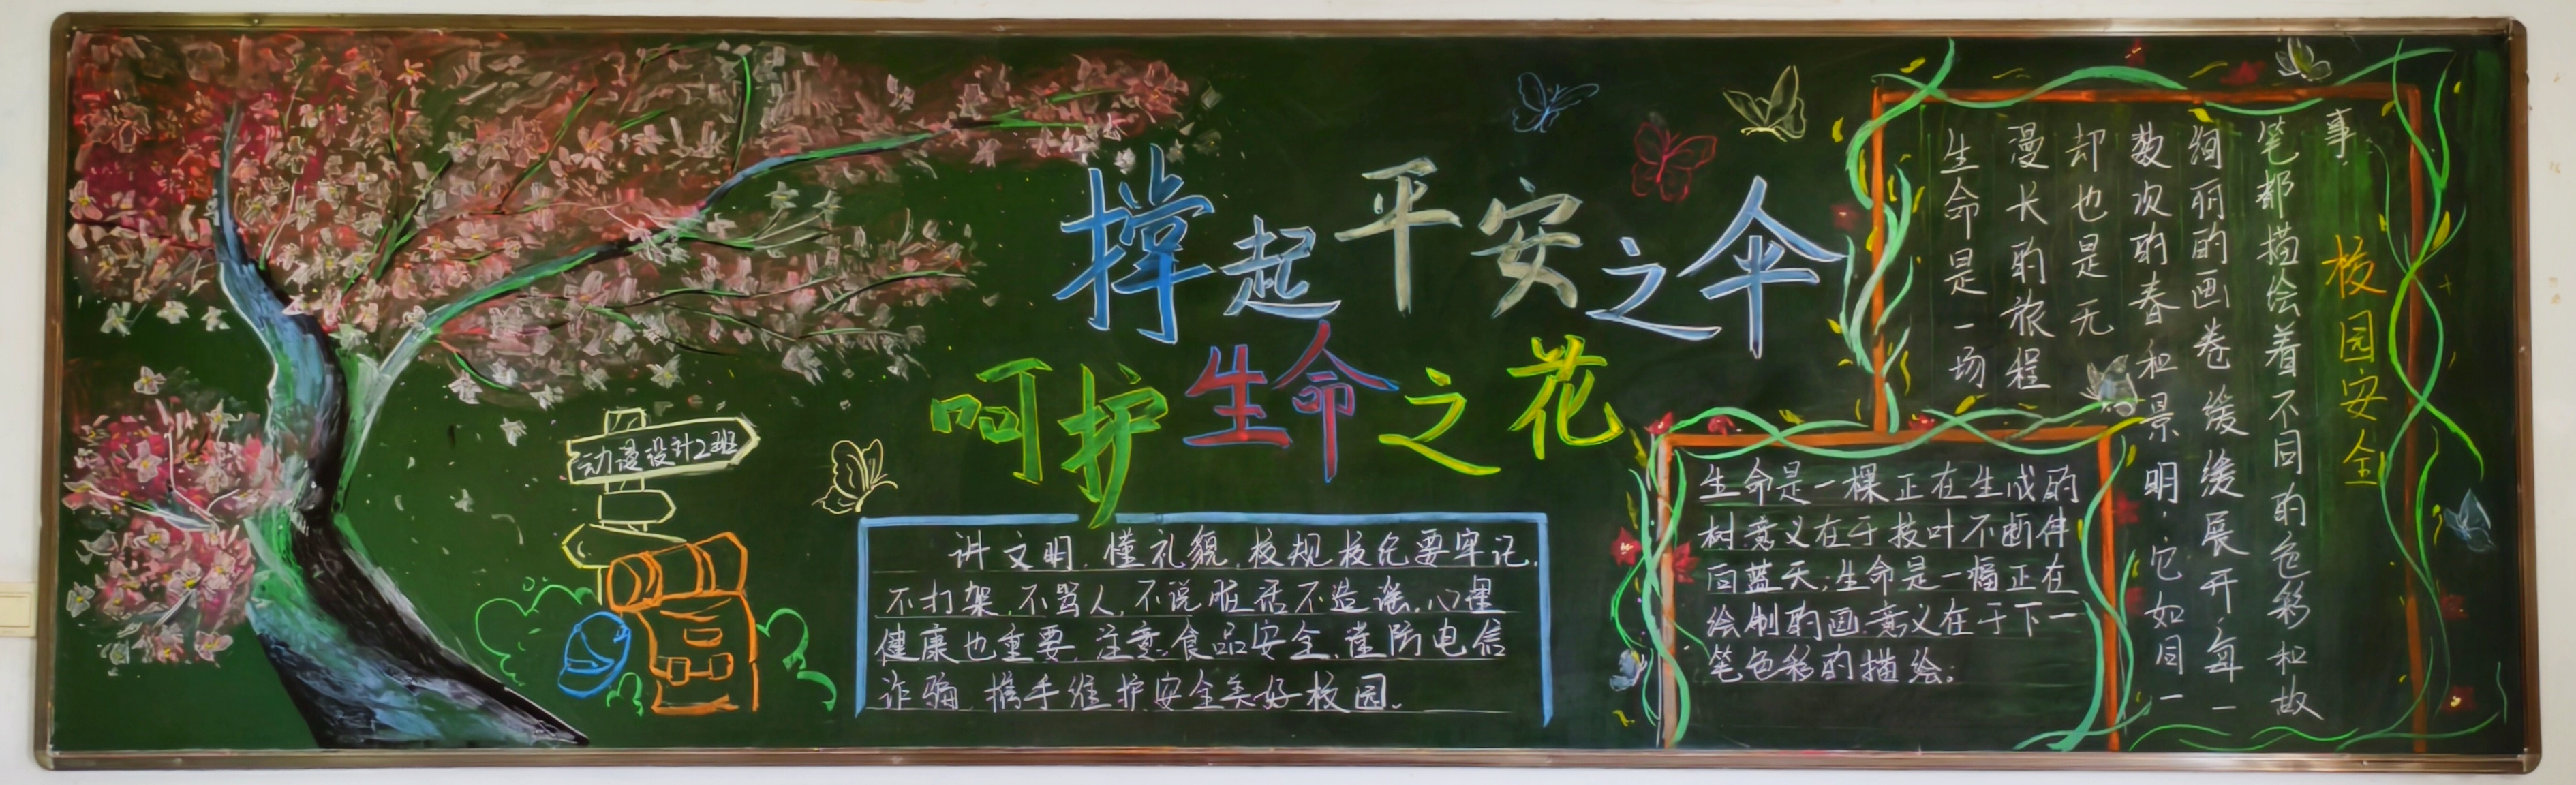 撑起平安之伞
呵护生命之花
动漫设计2班
讲文明,懂礼貌,校规校纪要牢记,
不打架,不骂人,不说脏话不造谣,心理
健康也重要,注意食品安全,谨防电信
诈骗,携手维护安全美好校园。
生命是一棵正在生成的
树,意义在于枝叶不断伸
向蓝天;生命是一幅正在
绘制的画,意义在于下一
笔色彩的描绘;
校园安全
生命是一场
漫长的旅程
却也是无
数次的春和景明,它如同一
绚丽的画卷缓缓展开,每一
笔都描绘着不同的色彩和故
事.